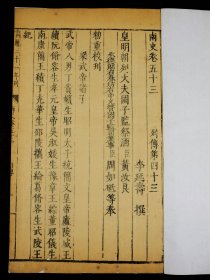 南史卷五十三
列傳第四十三
李延壽 撰
皇明朝列大夫國子監祭酒臣黃汝良
周如砥等奉
勅重校刊
梁武帝諸子
武帝八男丁貴嬪生昭明太子統簡文皇帝廬陵威王
續阮脩容生孝元皇帝吳淑媛生豫章王綜董昭儀生
南康簡王績丁充華生邵陵攜王綸葛脩容生武陵王
紀